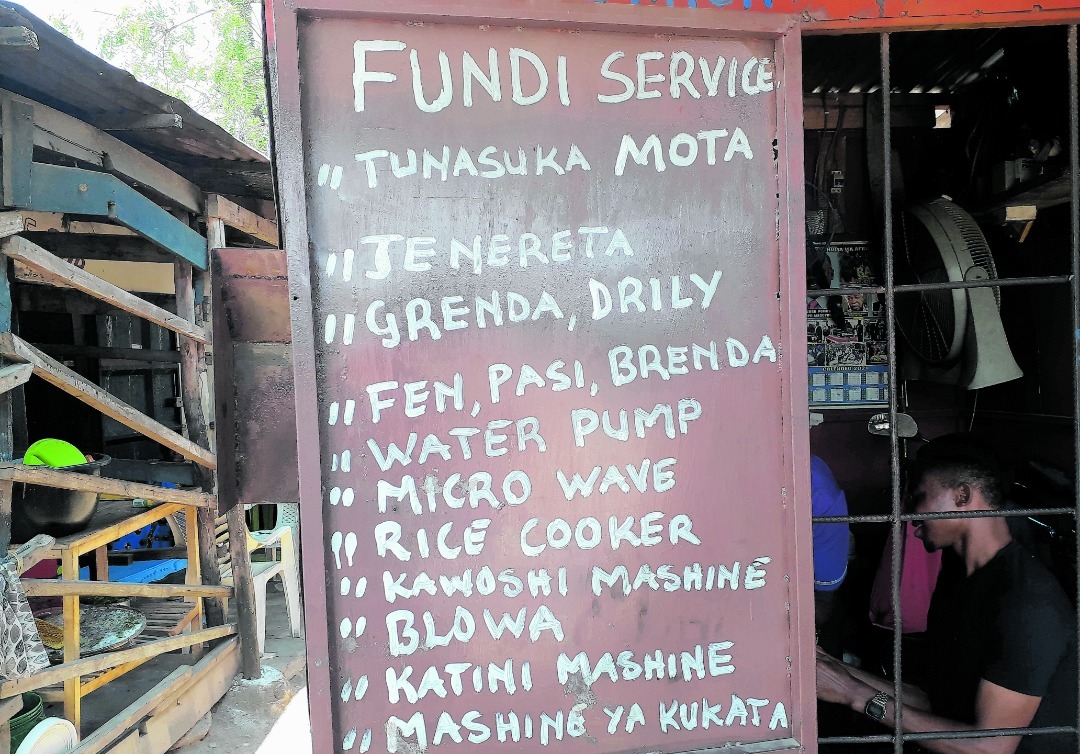 FUNDI SERVICE
" TUNASUKA MOTA
" JENERETA
" GRENDA, DRILY
" FEN, PASI, BRENDA
" WATER PUMP
" MICRO WAVE
" RICE COOKER
" KAWOSHI MASHINE
" BLOWA
" KATINI MASHINE
" MASHINE YA KUKATA